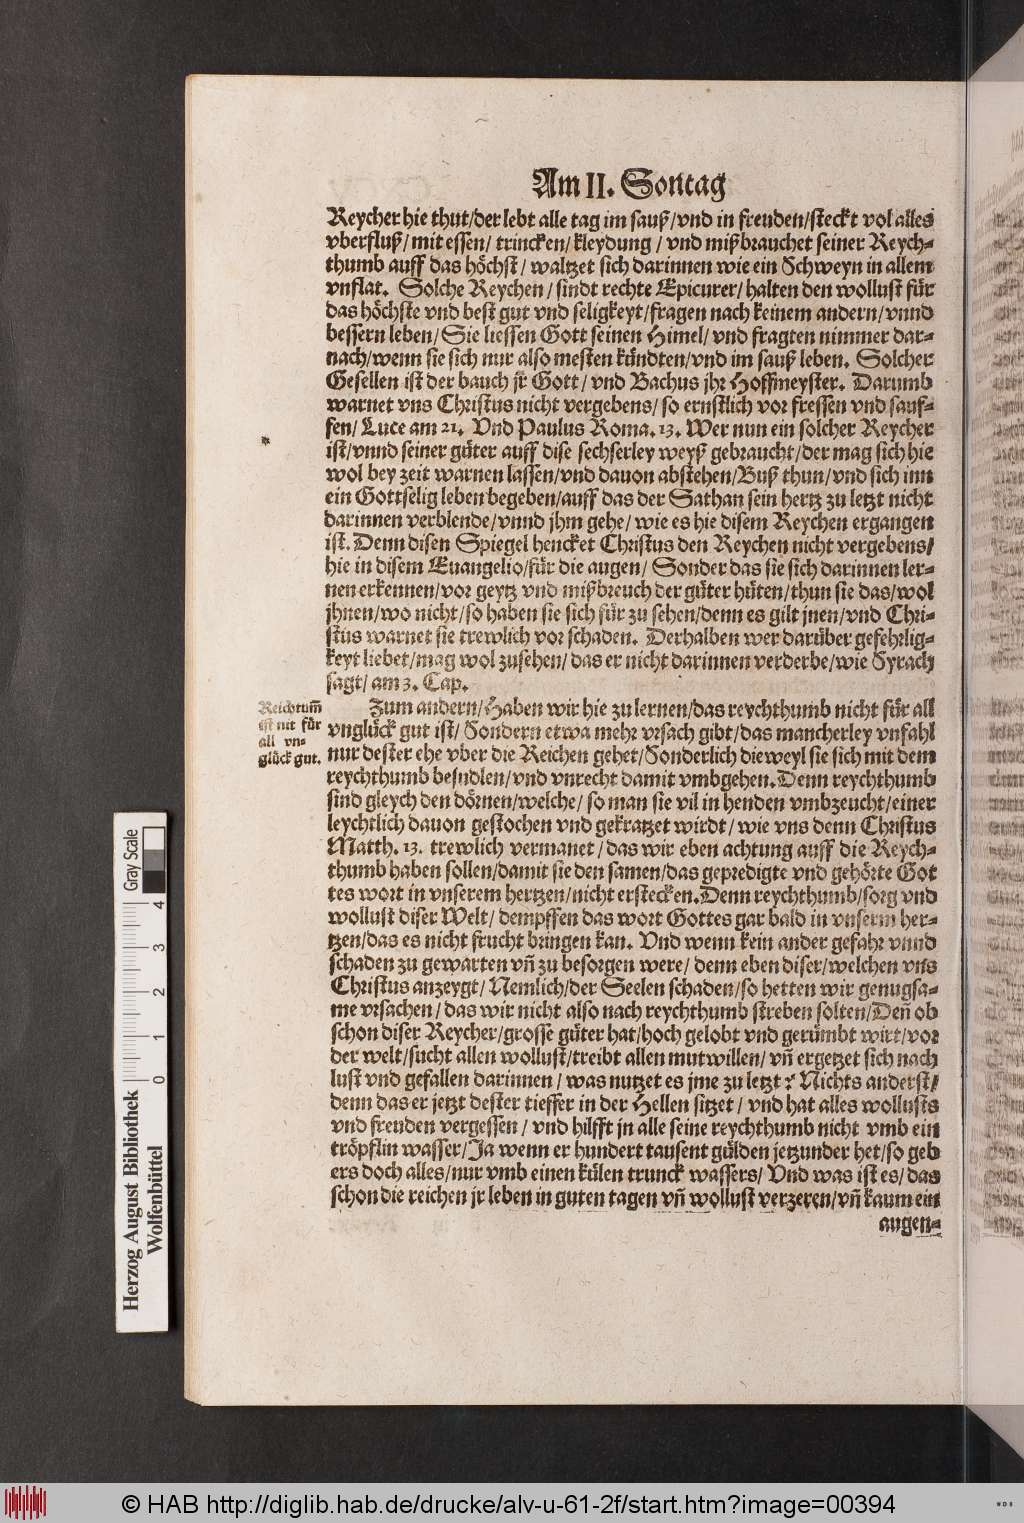 Am II. Sontag
Reycher hie thut/der lebt alle tag im sauß/vnd in freuden/steckt vol alles
vberfluß/ mit essen/ trincken/ kleydung / vnd mißbrauchet seiner Reych-
thumb auff das höchst / waltzet sich darinnen wie ein Schweyn in allem
vnflat. Solche Reychen / sindt rechte Epicurer/ halten den wollust für
das höchste vnd best gut vnd seligkeyt/fragen nach keinem andern/vnnd
bessern leben/ Sie liessen Gott seinen Himel/ vnd fragten nimmer dar-
nach/wenn sie sich nur also mesten kündten/vnd im sauß leben. Solcher
Gesellen ist der bauch jr Gott / vnd Bachus jhr Hoffmeyster. Darumb
warnet vns Christus nicht vergebens/ so ernstlich vor fressen vnd sauf-
fen/ Luce am 21. Vnd Paulus Roma. 13. Wer nun ein solcher Reycher
ist/vnnd seiner güter auff dise sechserley weyß gebraucht/der mag sich hie
wol bey zeit warnen lassen/vnd dauon abstehen/Buß thun/vnd sich inn
ein Gottselig leben begeben/auff das der Sathan sein hertz zu letzt nicht
darinnen verblende/vnnd jhm gehe/ wie es hie disem Reychen ergangen
ist. Denn disen Spiegel hencket Christus den Reychen nicht vergebens/
hie in disem Euangelio/für die augen/ Sonder das sie sich darinnen ler-
nen erkennen/vor geytz vnd mißbreuch der güter hüten/thun sie das/wol
jhnen/wo nicht/so haben sie sich für zu sehen/denn es gilt jnen/vnd Chri-
stus warnet sie trewlich vor schaden. Derhalben wer darüber gefehrlig-
keyt liebet/mag wol zusehen/ das er nicht darinnen verderbe/wie Syrach
sagt/ am 3. Cap.
Reichtum̃
ist nit für
all vn-
glück gut.
Zum andern/Haben wir hie zu lernen/das reychthumb nicht für all
vnglück gut ist/ Sondern etwa mehr vrsach gibt/das mancherley vnfahl
nur dester ehe vber die Reichen gehet/Sonderlich dieweyl sie sich mit dem
reychthumb besudlen/vnd vnrecht damit vmbgehen. Denn reychthumb
sind gleych den dörnen/welche/ so man sie vil in henden vmbzeucht/einer
leychtlich dauon gestochen vnd gekratzet wirdt/ wie vns denn Christus
Matth. 13. trewlich vermanet / das wir eben achtung auff die Reych-
thumb haben sollen/damit sie den samen/das gepredigte vnd gehörte Got
tes wort in vnserem hertzen/nicht erstecken. Denn reychthumb/sorg vnd
wollust diser Welt/ dempffen das wort Gottes gar bald in vnserm her-
tzen/das es nicht frucht bringen kan. Vnd wenn kein ander gefahr vnnd
schaden zu gewarten vñ zu besorgen were/ denn eben diser/welchen vns
Christus anzeygt/ Nemlich/der Seelen schaden/so hetten wir genugsa-
me vrsachen/ das wir nicht also nach reychthumb streben solten/Deñ ob
schon diser Reycher/grosse güter hat/hoch gelobt vnd gerümbt wirt/vor
der welt/sucht allen wollust/treibt allen mutwillen/ vñ ergetzet sich nach
lust vnd gefallen darinnen / was nutzet es jme zu letzt? Nichts anderst/
denn das er jetzt dester tieffer in der Hellen sitzet / vnd hat alles wollusts
vnd freuden vergessen / vnd hilfft jn alle seine reychthumb nicht vmb ein
tröpflin wasser/Ja wenn er hundert tausent gülden jetzunder het/so geb
ers doch alles/nur vmb einen külen trunck wassers/ Vnd was ist es/ das
schon die reichen jr leben in guten tagen vñ wollust verzeren/vñ kaum ein
augen-
Gray Scale
4
3
2
1
0
Herzog August Bibliothek
Wolfenbüttel
© HAB http://diglib.hab.de/drucke/alv-u-61-2f/start.htm?image=00394
WDB